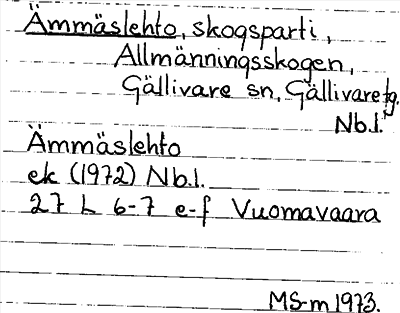 Ämmäslehto, skogsparti,
Allmänningsskogen,
Gällivare sn, Gällivare tg.
Nb.l.
Ämmäslehto
ek (1972) Nb.l.
27 L 6-7 e-f Vuomavaara
MS-m 1973.